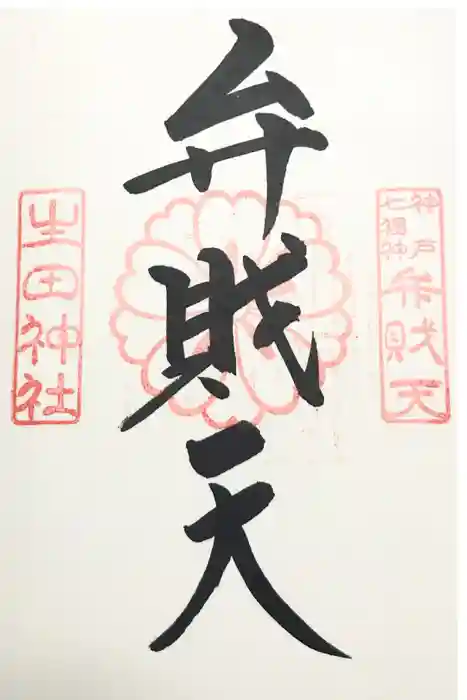 神戸七福神
弁財天
弁財天
生田神社